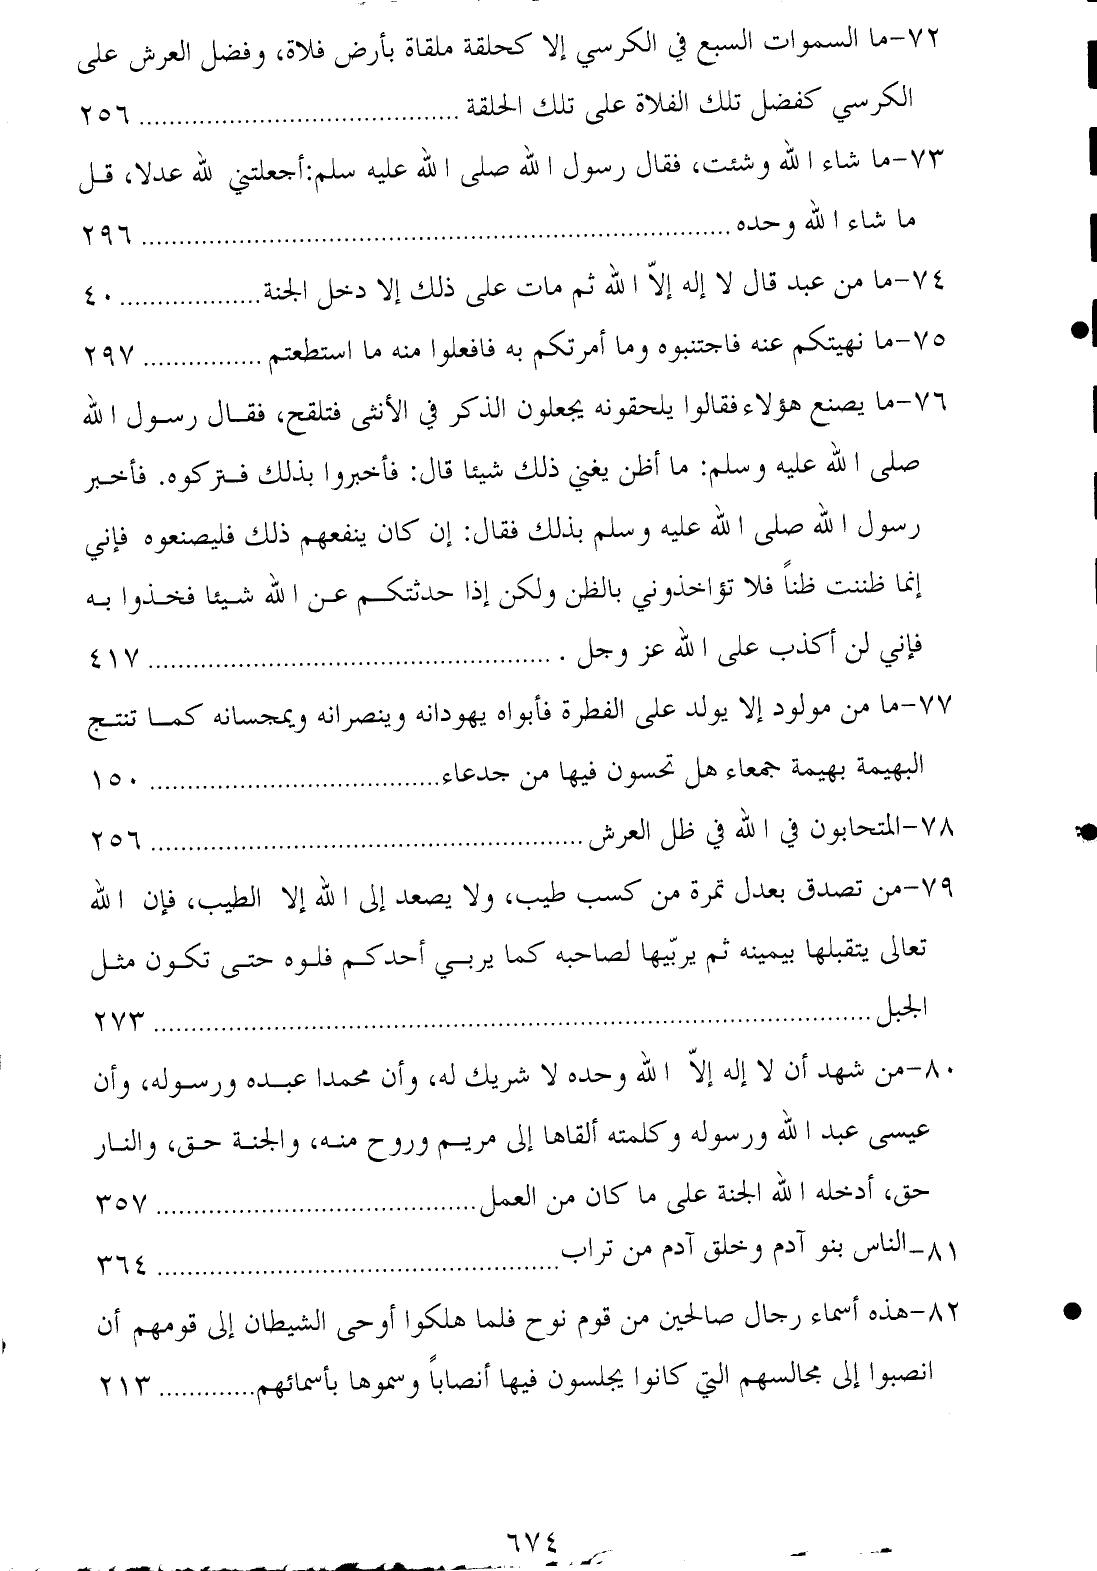 ٧٢-ما السموات السبع في الكرسي إلا كحلقة ملقاة بأرض فلاة، وفضل العرش على
الكرسي كفضل تلك الفلاة على تلك الحلقة ........................................ ٢٥٦
٧٣-ما شاء الله وشئت، فقال رسول الله صلى الله عليه سلم:أجعلتني لله عدلا، قل
ما شاء الله وحده ........................................................................ ٢٩٦
٧٤-ما من عبد قال لا إله إلاّ الله ثم مات على ذلك إلا دخل الجنة................... ٤٠
٧٥-ما نهيتكم عنه فاجتنبوه وما أمرتكم به فافعلوا منه ما استطعتم ................ ٢٩٧
٧٦-ما يصنع هؤلاء فقالوا يلحقونه يجعلون الذكر في الأنثى فتلقح، فقال رسول الله
صلى الله عليه وسلم: ما أظن يغني ذلك شيئا قال: فأخبروا بذلك فتركوه. فأخبر
رسول الله صلى الله عليه وسلم بذلك فقال: إن كان ينفعهم ذلك فليصنعوه فإني
إنما ظننت ظناً فلا تؤاخذوني بالظن ولكن إذا حدثتكم عن الله شيئا فخذوا به
فإني لن أكذب على الله عز وجل . .................................................... ٤١٧
٧٧-ما من مولود إلا يولد على الفطرة فأبواه يهودانه وينصرانه ويمجسانه كما تنتج
البهيمة بهيمة جمعاء هل تحسون فيها من جدعاء...................................... ١٥٠
٧٨-المتحابون في الله في ظل العرش........................................................ ٢٥٦
٧٩-من تصدق بعدل تمرة من كسب طيب، ولا يصعد إلى الله إلا الطيب، فإن الله
تعالى يتقبلها بيمينه ثم يربّيها لصاحبه كما يربي أحدكم فلوه حتى تكون مثل
الجبل .......................................................................................... ٢٧٣
٨٠-من شهد أن لا إله إلاّ الله وحده لا شريك له، وأن محمدا عبده ورسوله، وأن
عيسى عبد الله ورسوله وكلمته ألقاها إلى مريم وروح منه، والجنة حق، والنار
حق، أدخله الله الجنة على ما كان من العمل.......................................... ٣٥٧
٨١-الناس بنو آدم وخلق آدم من تراب.................................................... ٣٦٤
٨٢-هذه أسماء رجال صالحين من قوم نوح فلما هلكوا أوحى الشيطان إلى قومهم أن
انصبوا إلى مجالسهم التي كانوا يجلسون فيها أنصاباً وسموها بأسمائهم............. ٢١٣
٦٧٤